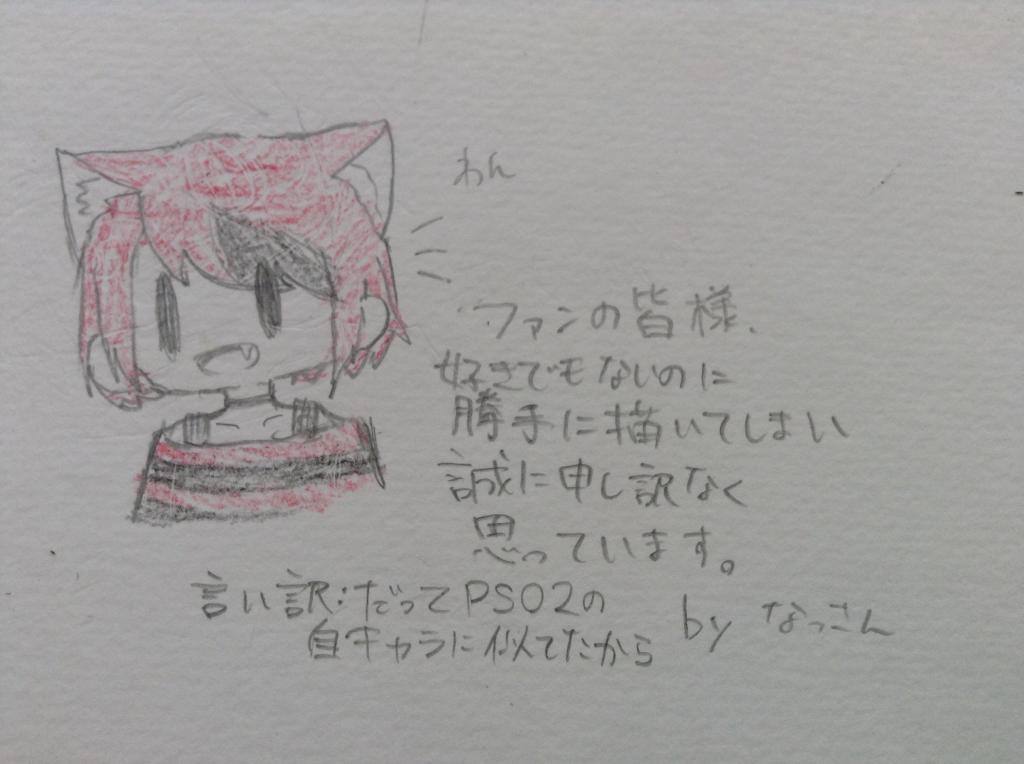 わん
ファンの皆様、
好きでもないのに
勝手に描いてしまい
誠に申し訳なく
思っています。
言い訳:だってPSO2の
自キャラに似てたから
by なっさん